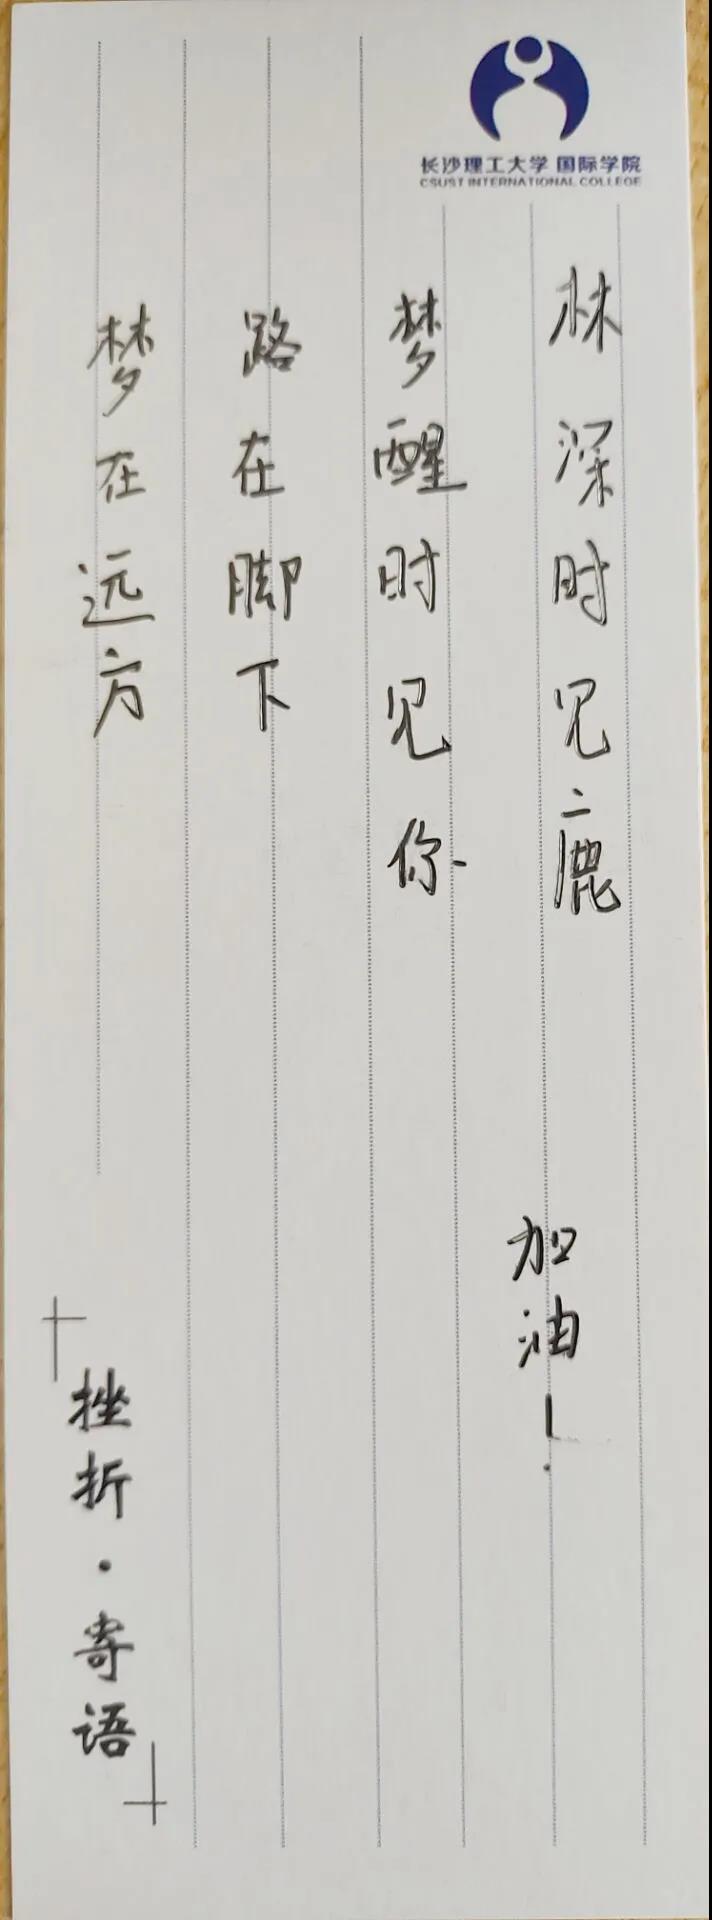 长沙理工大学 国际学院
CSUST INTERNATIONAL COLLEGE
林深时见鹿
加油!
梦醒时见你
路在脚下
梦在远方
挫折·寄语